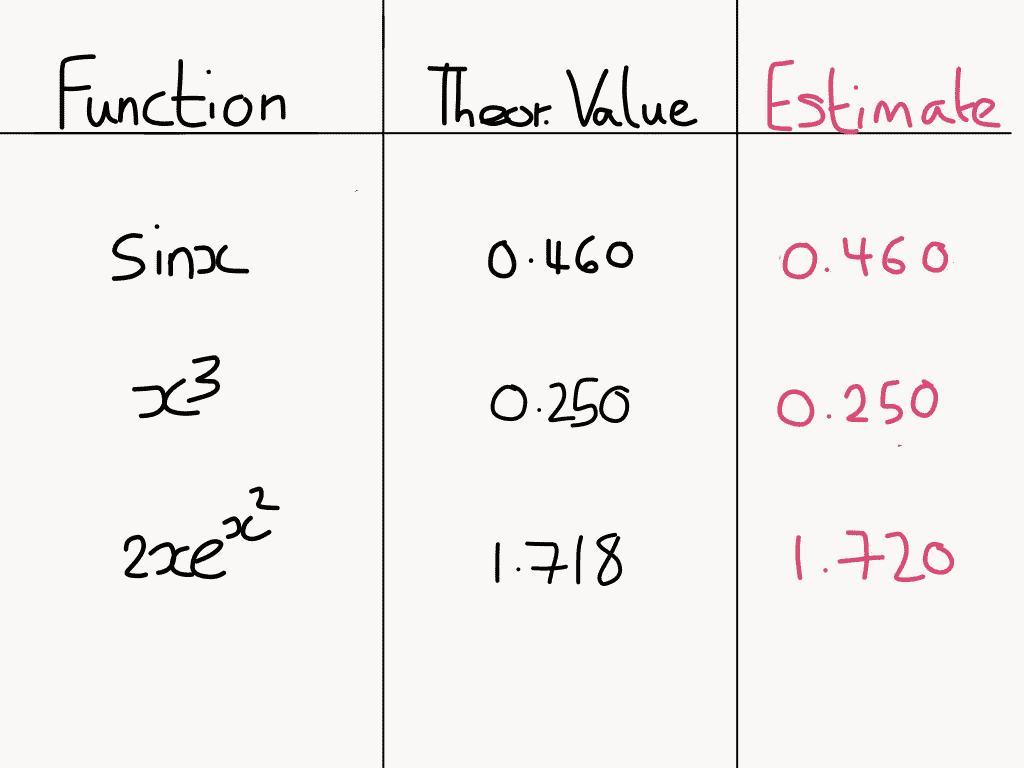 Function Theor. Value Estimate
Sinx 0.460 0.460
x³ 0.250 0.250
2xe^x² 1.718 1.720